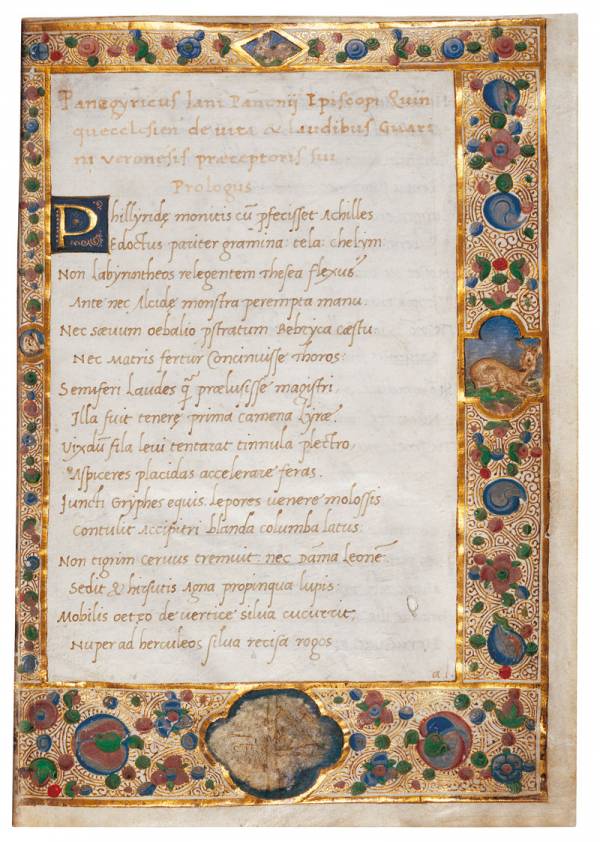 Panegyricus Iani Pannonij Episcopi Quin
queecclesien de vita & laudibus Guari
ni veronesis præceptoris sui
Prologus
Phillyridę monitis cũ ꝓfecisset Achilles
Edoctus pariter gramina: tela: chelym:
Non labyrintheos relegentem Thesea flexus
Ante nec Alcidę monstra perempta manu.
Nec sævum oebalio pstratum Bebryca cæstu:
Nec Matris fertur Concinuisse thoros:
Semiferi Laudes q̃ prælusisse magistri,
Illa fuit tenerę prima camena lyræ.
Vixdũ fila levi tentarat tinnula plectro,
Aspiceres placidas accelerare feras.
Juncti Gryphes equis: lepores venere molossis
Contulit Accipitri blanda columba latus.
Non tigrim Cervus tremuit: nec Dãma leonẽ
Sedit & hirsutis Agna propinqua lupis:
Mobilis oetęo de vertice silva cucurrit,
Nuper ad herculeos silva recisa rogos
a 1